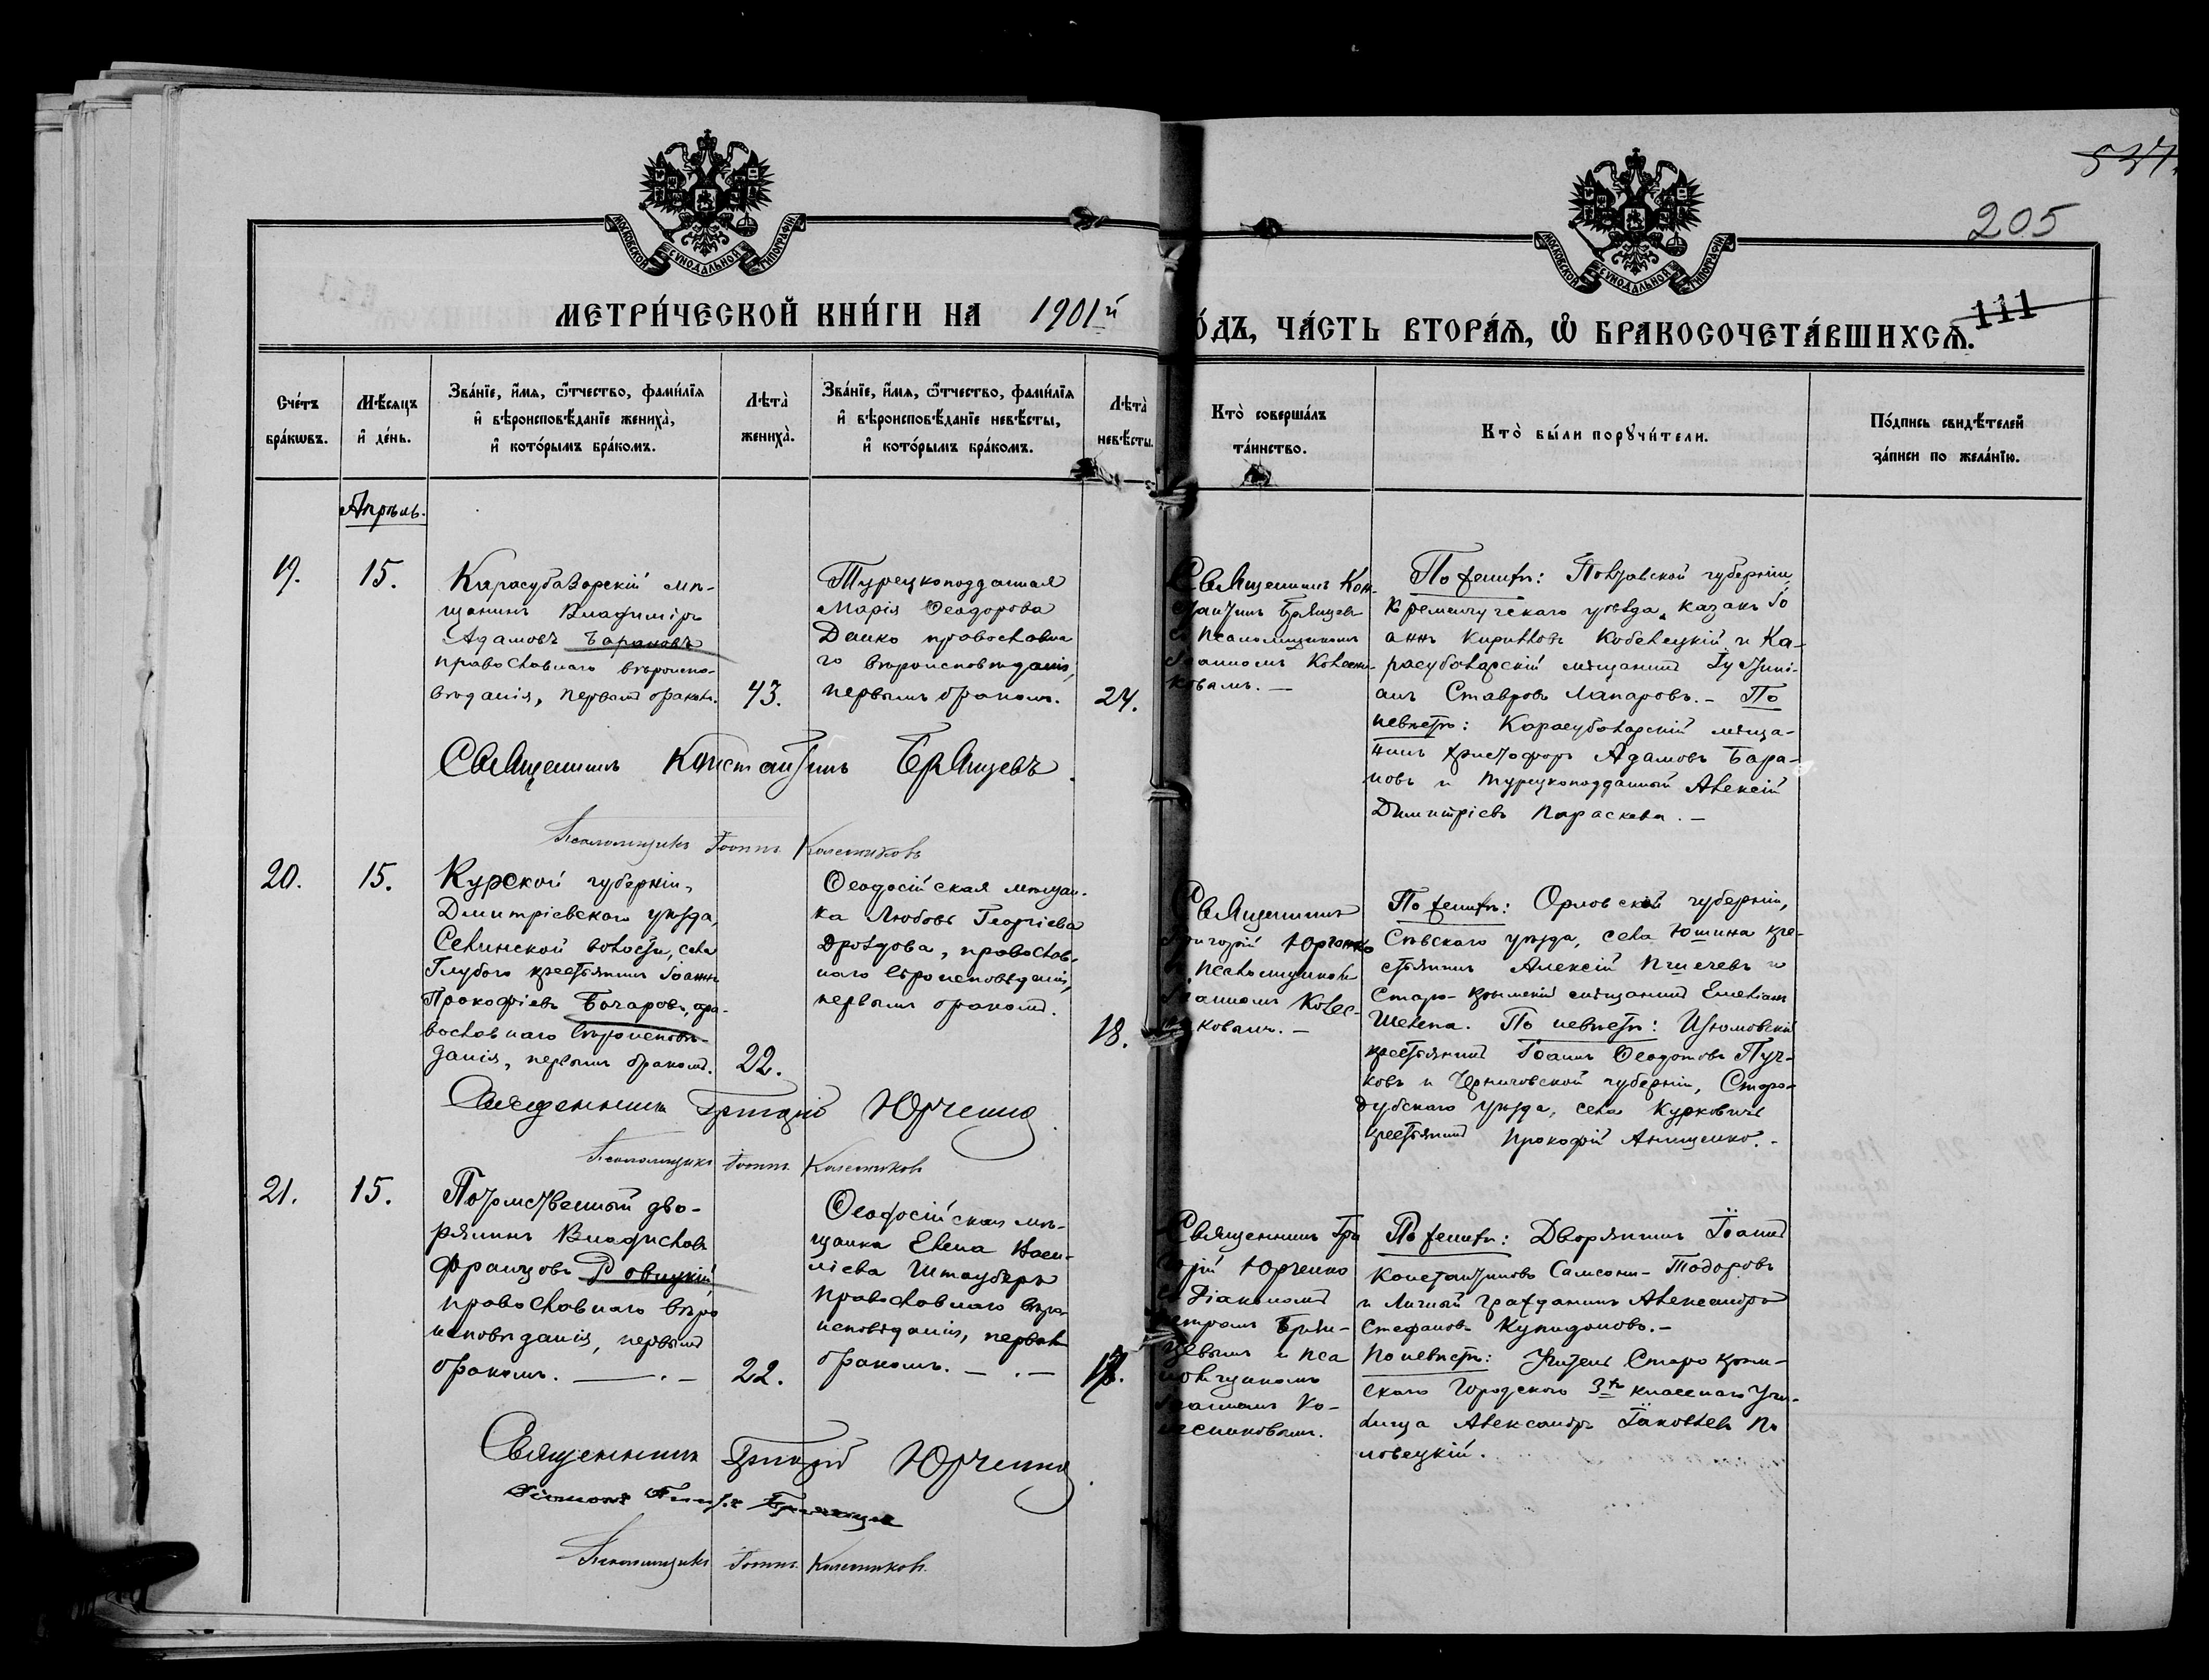 537.
205
111
МОСКОВСКОЙ СѴНОДАЛЬНОЙ ТИПОГРАФІИ
МОСКОВСКОЙ СѴНОДАЛЬНОЙ ТИПОГРАФІИ
МЕТРИ́ЧЕСКОЙ КНИ́ГИ НА 1901й
О́ДЪ, ЧА́СТЬ ВТОРА́Ѧ, Ѡ҆ БРАКОСОЧЕТА́ВШИХСѦ.
Сче́тъ
бра́кѡвъ.
Мѣ́сяцъ
и҆ де́нь.
Зва́нїе, и҆́мя, ѻ҆́тчество, фами́лїя
и҆ вѣроисповѣ́данїе жениха̀,
и҆ кото́рымъ бра́комъ.
Лѣта̀
жениха̀.
Зва́нїе, и҆́мя, ѻ҆́тчество, фами́лїя
и҆ вѣроисповѣ́данїе невѣ́сты,
и҆ кото́рымъ бра́комъ.
Лѣта̀
невѣ́сты.
Кто̀ соверша́лъ
та́инство.
Кто̀ бы́ли порꙋчи́тели.
По́дпись свидѣ́телей
за́писи по жела́нїю.
Апрѣль.
19.
15.
Карасубазарскій мѣ-
щанинъ Владиміръ
Адамовъ Барановъ
православнаго вѣроиспо-
вѣданія, первымъ бракомъ.
43.
Турецкоподданная
Марія Ѳеодорова
Данко православна
го вѣроисповѣданія,
первымъ бракомъ.
24.
Священникъ Кон-
стантинъ Брянцевъ
съ Псаломщикомъ
Іоанномъ Колесни-
ковымъ. —
По женихѣ: Полтавской губерніи
Кременчугскаго уѣзда, казакъ Іо
аннъ Кирилловъ Кобелецкій и Ка-
расубазарскій мѣщанинъ Іустині-
анъ Ставровъ Лапаровъ. — По
невѣстѣ: Карасубазарскій мѣща-
нинъ Христофоръ Адамовъ Бара-
новъ и турецкоподданный Алексій
Димитріевъ Параскева. —
Священникъ Константинъ Брянцевъ.
Псаломщикъ Іоаннъ Колесниковъ
20.
15.
Курской губерніи,
Дмитріевскаго уѣзда,
Селинской волости, села
Глубого крестьянинъ Іоаннъ
Прокофіевъ Бочаровъ, пра-
вославнаго вѣроисповѣ-
данія, первымъ бракомъ.
22.
Ѳеодосійская мѣщан-
ка Любовь Георгіева
Дроздова, православ-
наго вѣроисповѣданія,
первымъ бракомъ.
18.
Священникъ
Григорій Юрченко
съ Псаломщикомъ
Іоанномъ Колес-
никовымъ. —
По женихѣ: Орловской губерніи,
Сѣвскаго уѣзда, села Юшина кре-
стьянинъ Алексій Пшечевъ и
Старо-Крымскій мѣщанинъ Емеліанъ
Шелепа. По невѣстѣ: Изюмовскій
крестьянинъ Іоаннъ Ѳеодотовъ Пуч-
ковъ и Черниговской губерніи, Старо-
дубскаго уѣзда, села Курковичъ
крестьянинъ Прокофій Анищенко. -
Священникъ Григорій Юрченко.
Псаломщикъ Іоаннъ Колесниковъ
21.
15.
Потомственный дво-
рянинъ Владиславъ
Францовъ Ровицкій,
православнаго вѣро
исповѣданія, первымъ
бракомъ. — . —
22.
Ѳеодосійская мѣ-
щанка Елена Васи-
ліева Штауберъ
православнаго вѣро-
исповѣданія, первымъ
бракомъ. — . —
17.
Священникъ Гри
горій Юрченко
съ Діакономъ
Петромъ Брян-
цевымъ и Пса
ломщикомъ
Іоанномъ Ко-
лесниковымъ.
По женихѣ: Дворянинъ Іоаннъ
Константиновъ Самсони-Тодоровъ
и Личный гражданинъ Александръ
Стефановъ Купидоновъ. —
По невѣстѣ: Учитель Старокрым-
скаго Городского 3хъ класснаго Учи-
лища Александръ Іаковлевъ По
ловецкій.
Священникъ Григорій Юрченко.
Псаломщикъ Іоаннъ Колесниковъ.